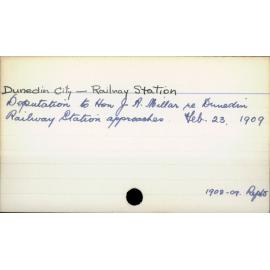 Dunedin City — Railway Station
Deputation to Hon J. A. Millar re Dunedin
Railway Station approaches. Feb. 23, 1909
1908-09. Repts